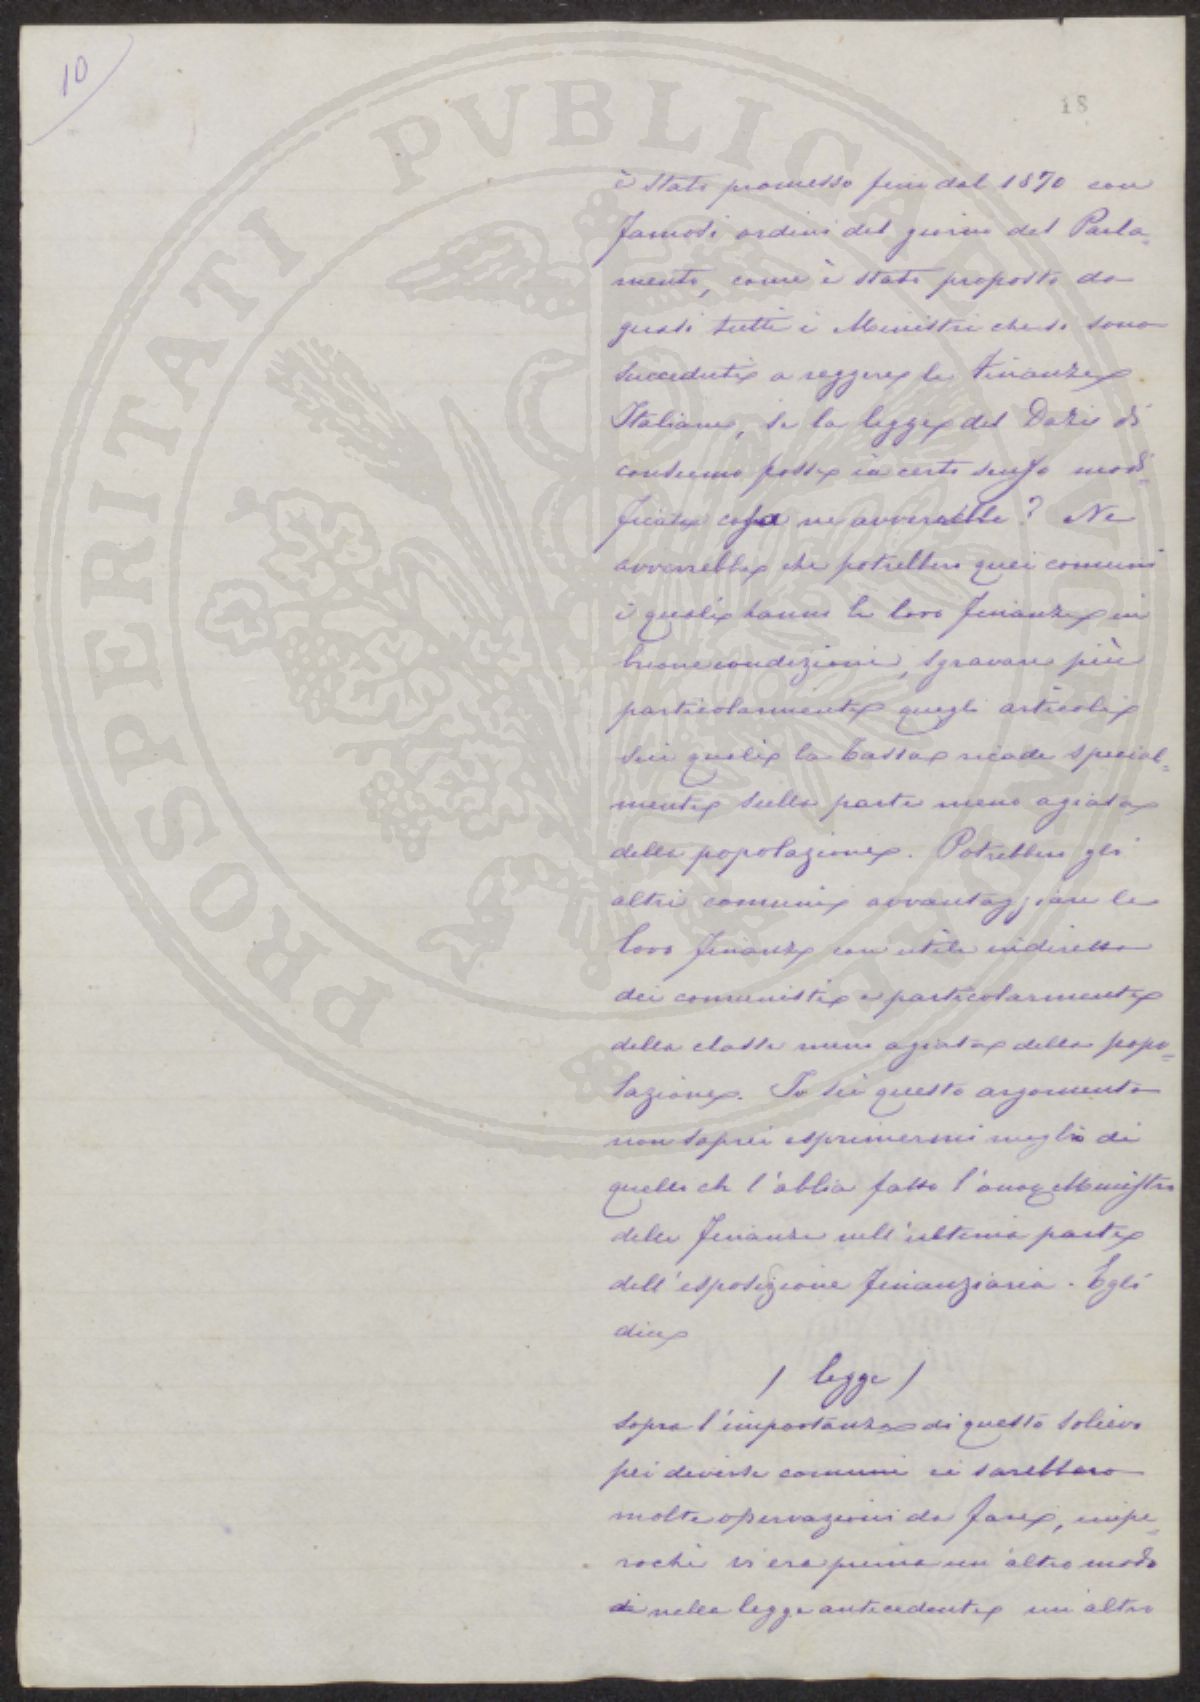 10
18
è stato promesso fin dal 1870 con
famosi ordini del giorno del Parla=
mento, come è stato proposto da
quasi tutti i Ministri che si sono
succeduti a reggere le finanze
Italiane, se la legge del Dazio di
consumo fosse in certo senso modi=
ficata cosa ne avverrebbe? Ne
avverrebbe che potrebbero quei comuni
i quali hanno le loro finanze in
buone condizioni, sgravare più
particolarmente quegli articoli
sui quali la tassa ricade special=
mente sulla parte meno agiata
della popolazione. Potrebbero gli
altri comuni avvantaggiare le
loro finanze con utile indiretto
dei comunisti e particolarmente
della classe meno agiata della popo=
lazione. Io su questo argomento
non saprei esprimermi meglio di
quello che l'abbia fatto l'onor. Ministro
delle finanze nell'ultima parte
dell'esposizione finanziaria. Egli
dice
/ legge /
sopra l'importanza di questo solievo
pei diversi comuni vi sarebbero
molte osservazioni da fare, impe=
rochè vi era prima un altro modo
di nella legge antecedente un altro
PROSPERITATI PVBLICAE